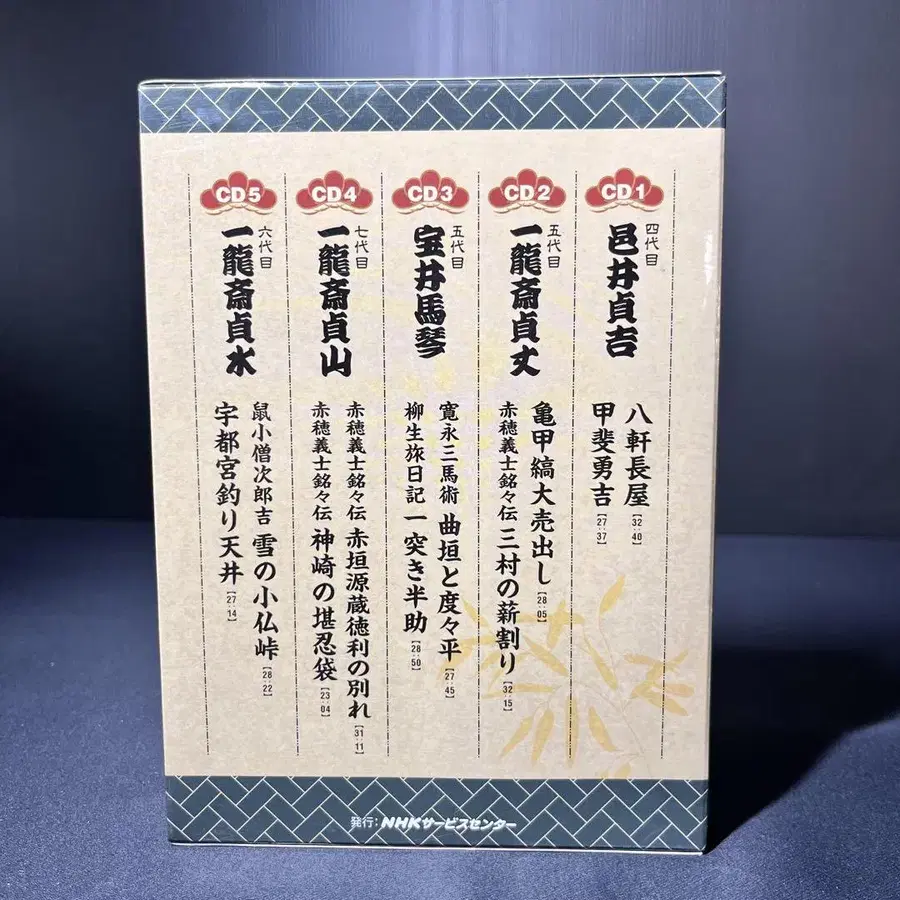 CD1
四代目
邑井貞吉
八軒長屋【32:40】
甲斐勇吉【27:37】
CD2
五代目
一龍斎貞丈
亀甲縞大売出し【28:05】
赤穂義士銘々伝 三村の薪割り【32:15】
CD3
五代目
宝井馬琴
寛永三馬術 曲垣と度々平【27:45】
柳生旅日記 一突き半助【28:50】
CD4
七代目
一龍斎貞山
赤穂義士銘々伝 赤垣源蔵徳利の別れ【31:11】
赤穂義士銘々伝 神崎の堪忍袋【23:04】
CD5
六代目
一龍斎貞水
鼠小僧次郎吉 雪の小仏峠【28:22】
宇都宮釣り天井【27:14】
発行:NHKサービスセンター